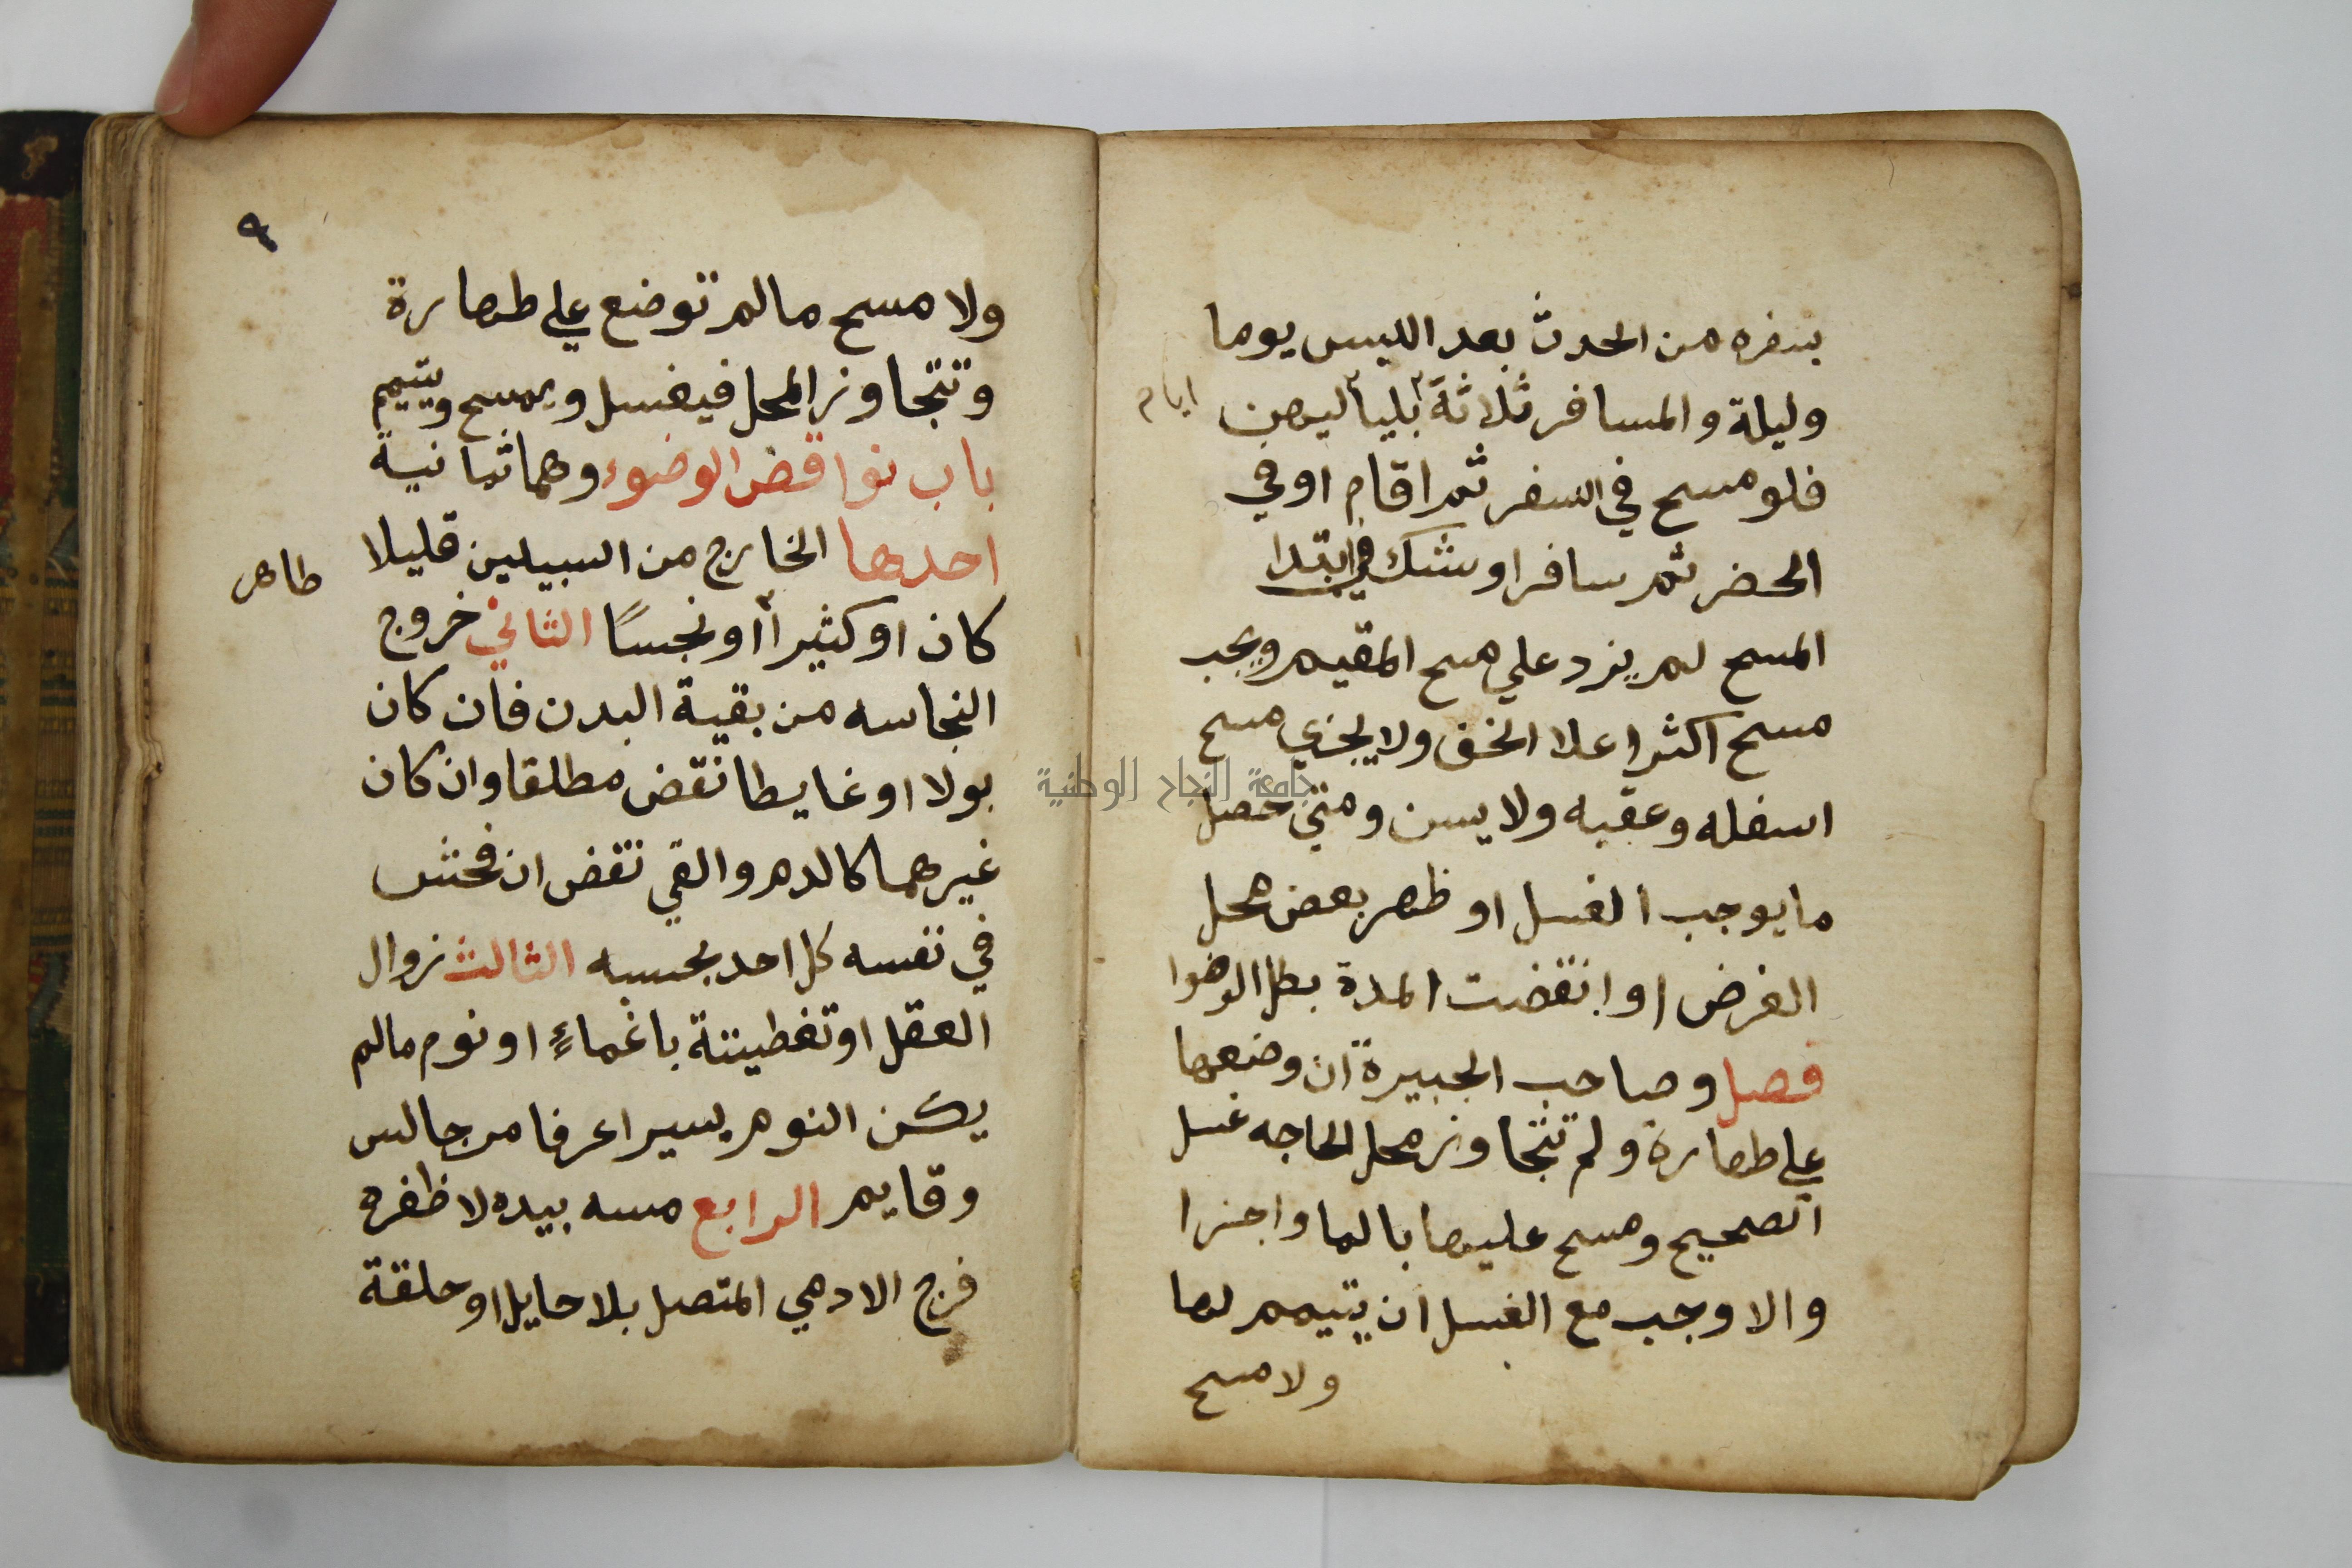 بسفره من الحدث بعد اللبس يوما
وليلة والمسافر ثلاثة بلياليهن
ايام
فلو مسح في السفر ثم اقام او في
الحضر ثم سافر او شك في ابتدا
المسح لم يزد علي مسح المقيم ويجب
مسح اكثر اعلا الخف ولا يجزي مسح
اسفله وعقبه ولا يسن ومتي حصل
ما يوجب الغسل او ظهر بعض محل
الفرض او انقضت المدة بطل الوضوا
فصل وصاحب الجبيرة ان وضعها
علي طهارة ولم تتجاوز محل الحاجه غسل
الصحيح ومسح عليها بالما واجزا
والا وجب مع الغسل ان يتيمم لها
ولا مسح
٩
ولا مسح مالم توضع علي طهارة
وتتجاوز المحل فيغسل ويمسح ويتيمم
باب نواقض الوضوء وهما ثمانية
احدها الخارج من السبيلين قليلا
طاهر
كان او كثيرا أو نجسًا الثاني خروج
النجاسه من بقية البدن فان كان
بولا او غايطا نقض مطلقا وان كان
غيرهما كالدم والقي نقض ان فحش
في نفسه كل احد بحسبه الثالث زوال
العقل او تغطيتة باغماءٍ او نوم مالم
يكن النوم يسيرا عرفا من جالس
وقايم الرابع مسه بيده لا ظفره
فرج الادمي المتصل بلا حايل او حلقة
جامعة النجاح الوطنية